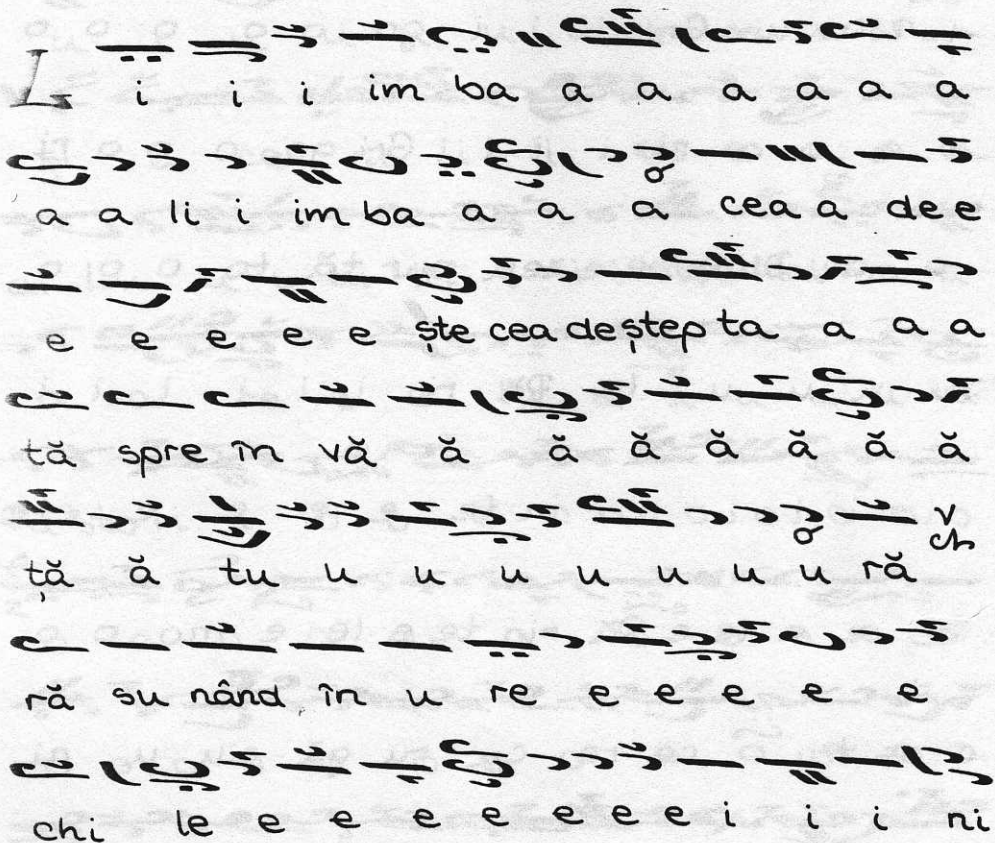 L i i i im ba a a a a a a
a a li i im ba a a a cea a de e
e e e e e ște cea deștep ta a a a
tă spre în vă ă ă ă ă ă ă ă
ță ă tu u u u u u u u ră
ră su nând în u re e e e e e
chi le e e e e e e e i i i ni